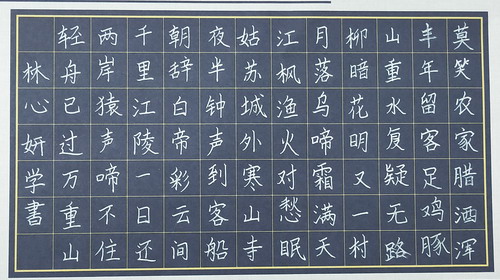 莫笑农家腊酒浑
丰年留客足鸡豚
山重水复疑无路
柳暗花明又一村
月落乌啼霜满天
江枫渔火对愁眠
姑苏城外寒山寺
夜半钟声到客船
朝辞白帝彩云间
千里江陵一日还
两岸猿声啼不住
轻舟已过万重山
林心妍学書